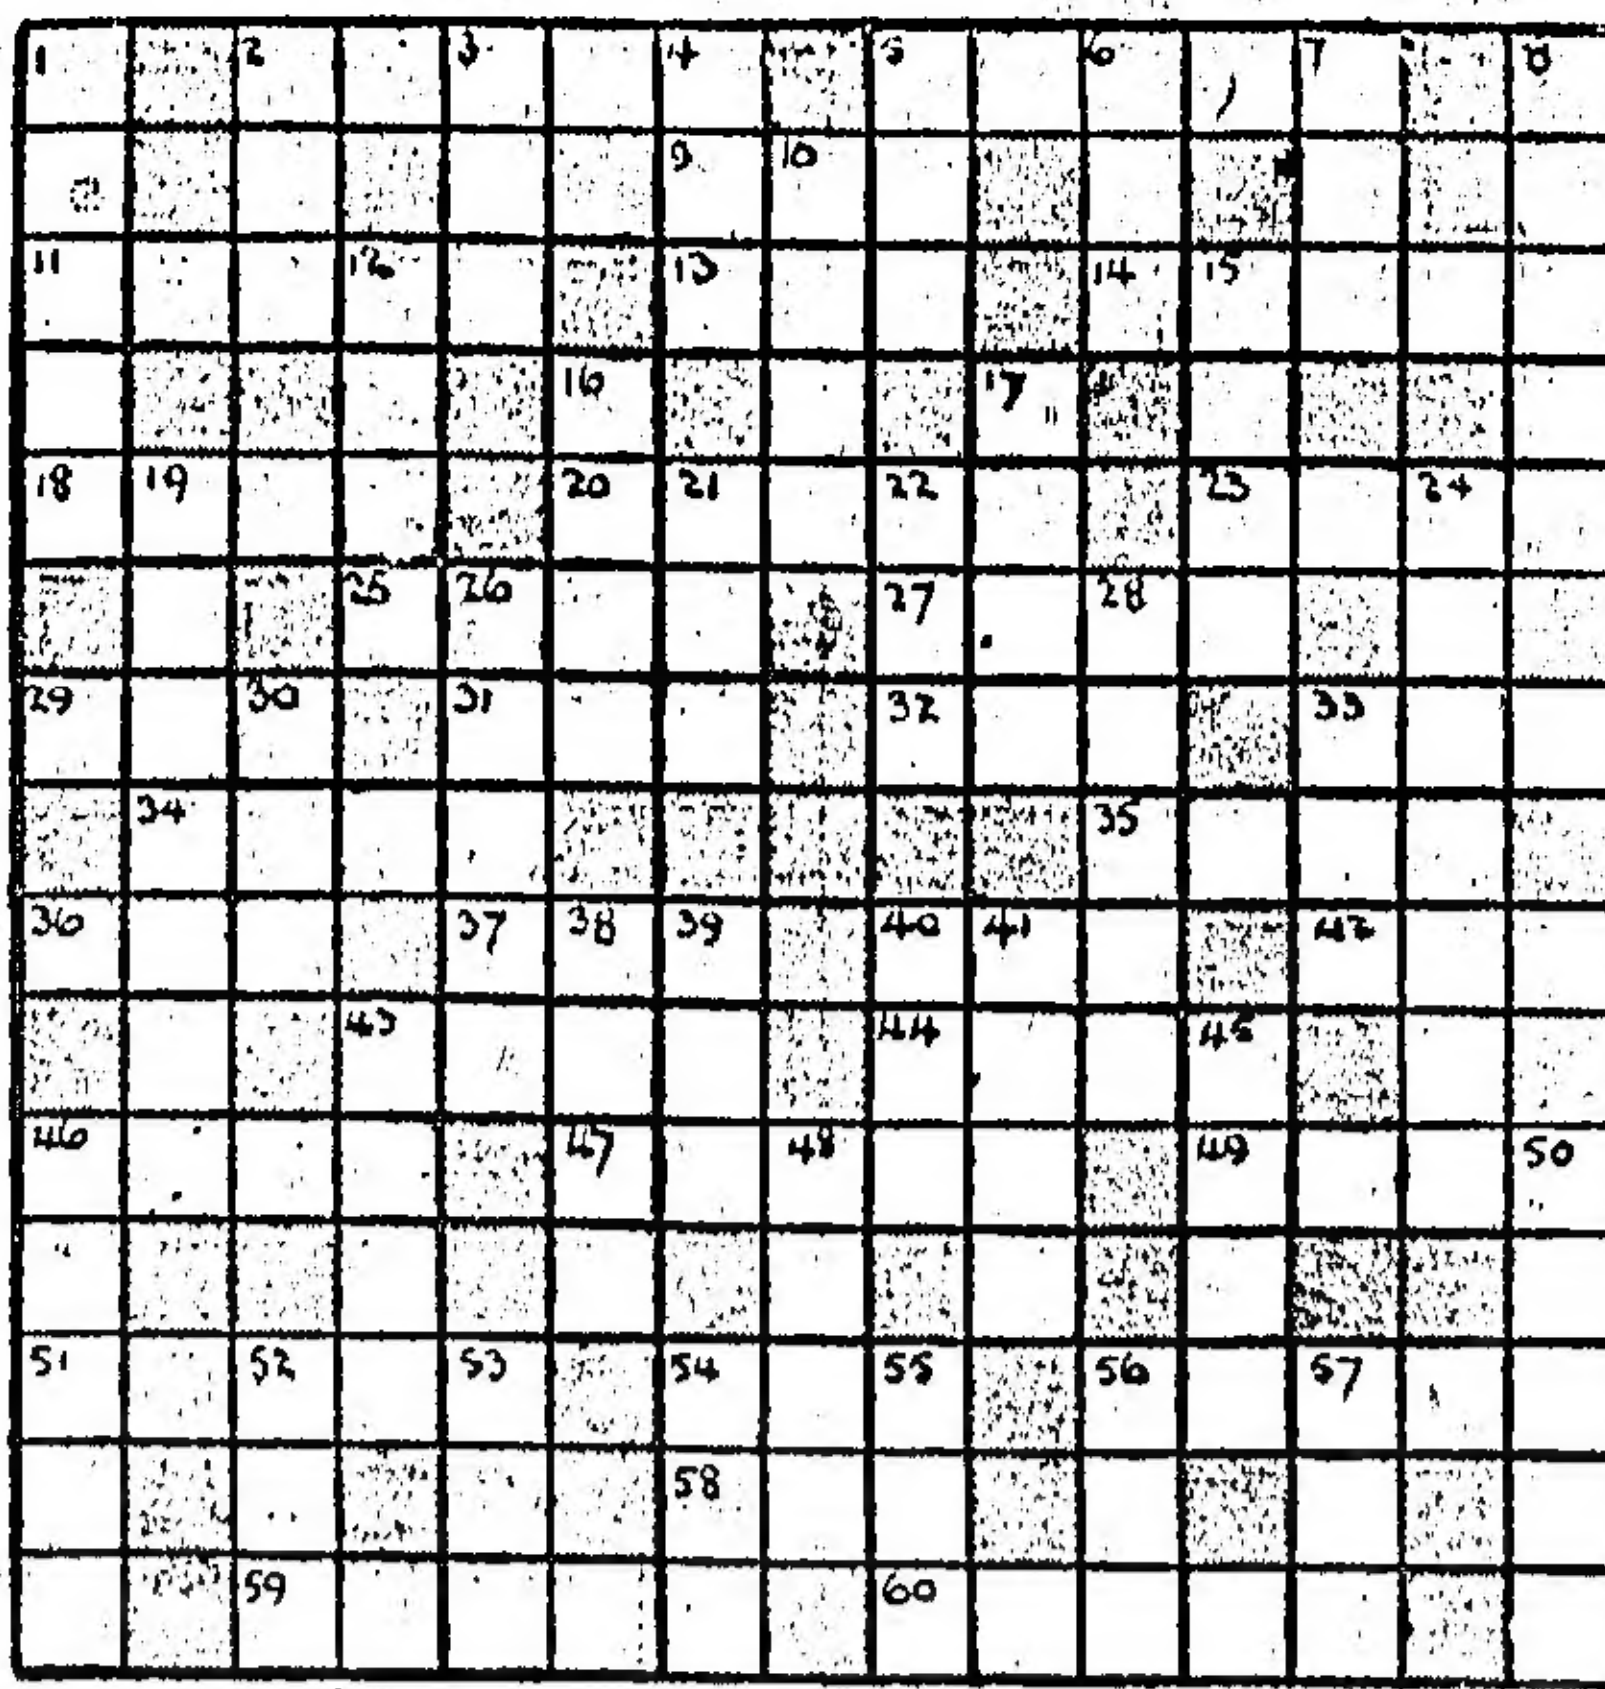 1 2 3 4 5 6 7 8
9 10
11 12 13 14 15
16 17
18 19 20 21 22 23 24
25 26 27 28
29 30 31 32 33
34 35
36 37 38 39 40 41 42
43 44 45
46 47 48 49 50
51 52 53 54 55 56 57
58
59 60